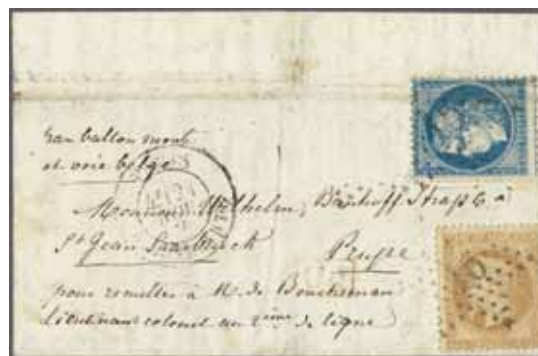 par ballon monté
et voie belge
Monsieur Wilhelm, Bahnhoff Strasse 6 à
St Jean Saarbruck Prusse
pour remettre à M. de
Lieutenant colonel au 2ème de ligne